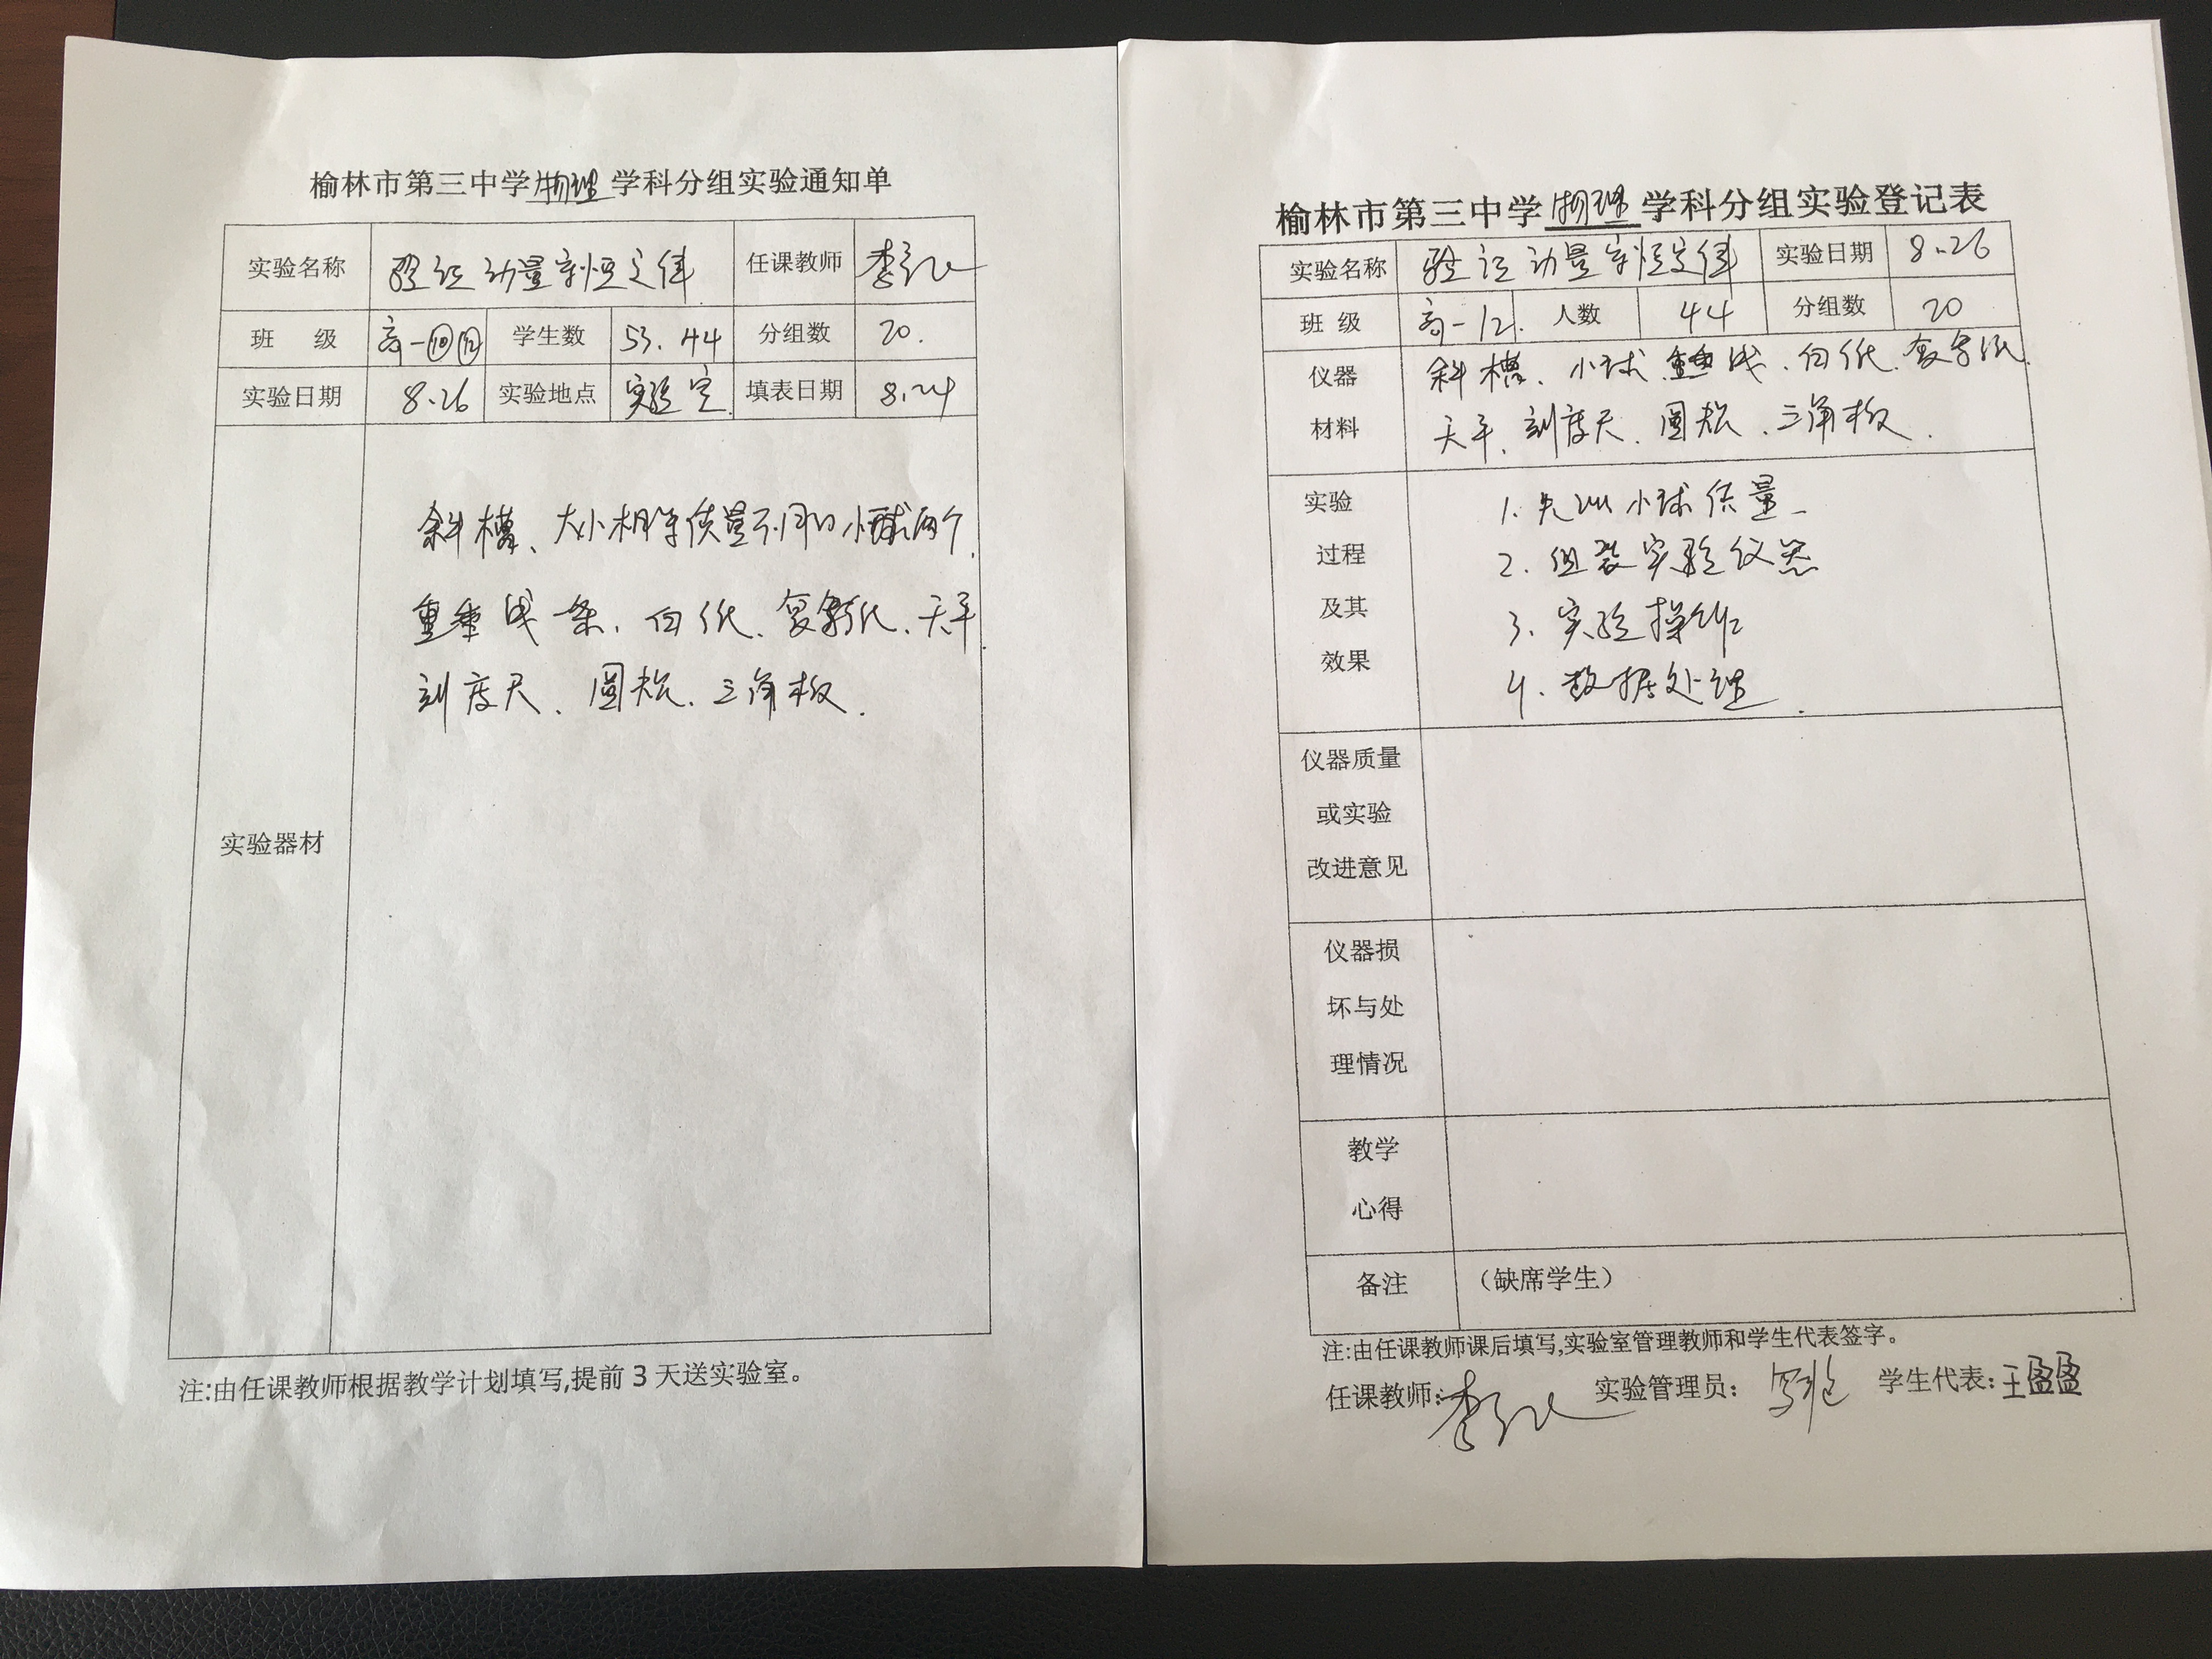 榆林市第三中学物理学科分组实验通知单
实验名称 验证动量守恒定律 任课教师
班 级 高一⑩⑫ 学生数 53.44 分组数 20.
实验日期 8.26 实验地点 实验室 填表日期 8.24
斜槽、大小相等质量不同的小球两个
重垂线一条、白纸、复写纸、天平
刻度尺、圆规、三角板.
实验器材
注:由任课教师根据教学计划填写,提前3天送实验室。
榆林市第三中学物理学科分组实验登记表
实验名称 验证动量守恒定律 实验日期 8.26
班 级 高一12. 人数 44 分组数 20
仪器 斜槽、小球、重垂线、白纸、复写纸
材料 天平、刻度尺、圆规、三角板.
实验 1.先测小球质量
过程 2.组装实验仪器
及其 3.实验操作
效果 4.数据处理.
仪器质量
或实验
改进意见
仪器损
坏与处
理情况
教学
心得
备注 （缺席学生）
注:由任课教师课后填写,实验室管理教师和学生代表签字。
任课教师: 实验管理员: 学生代表:王盈盈